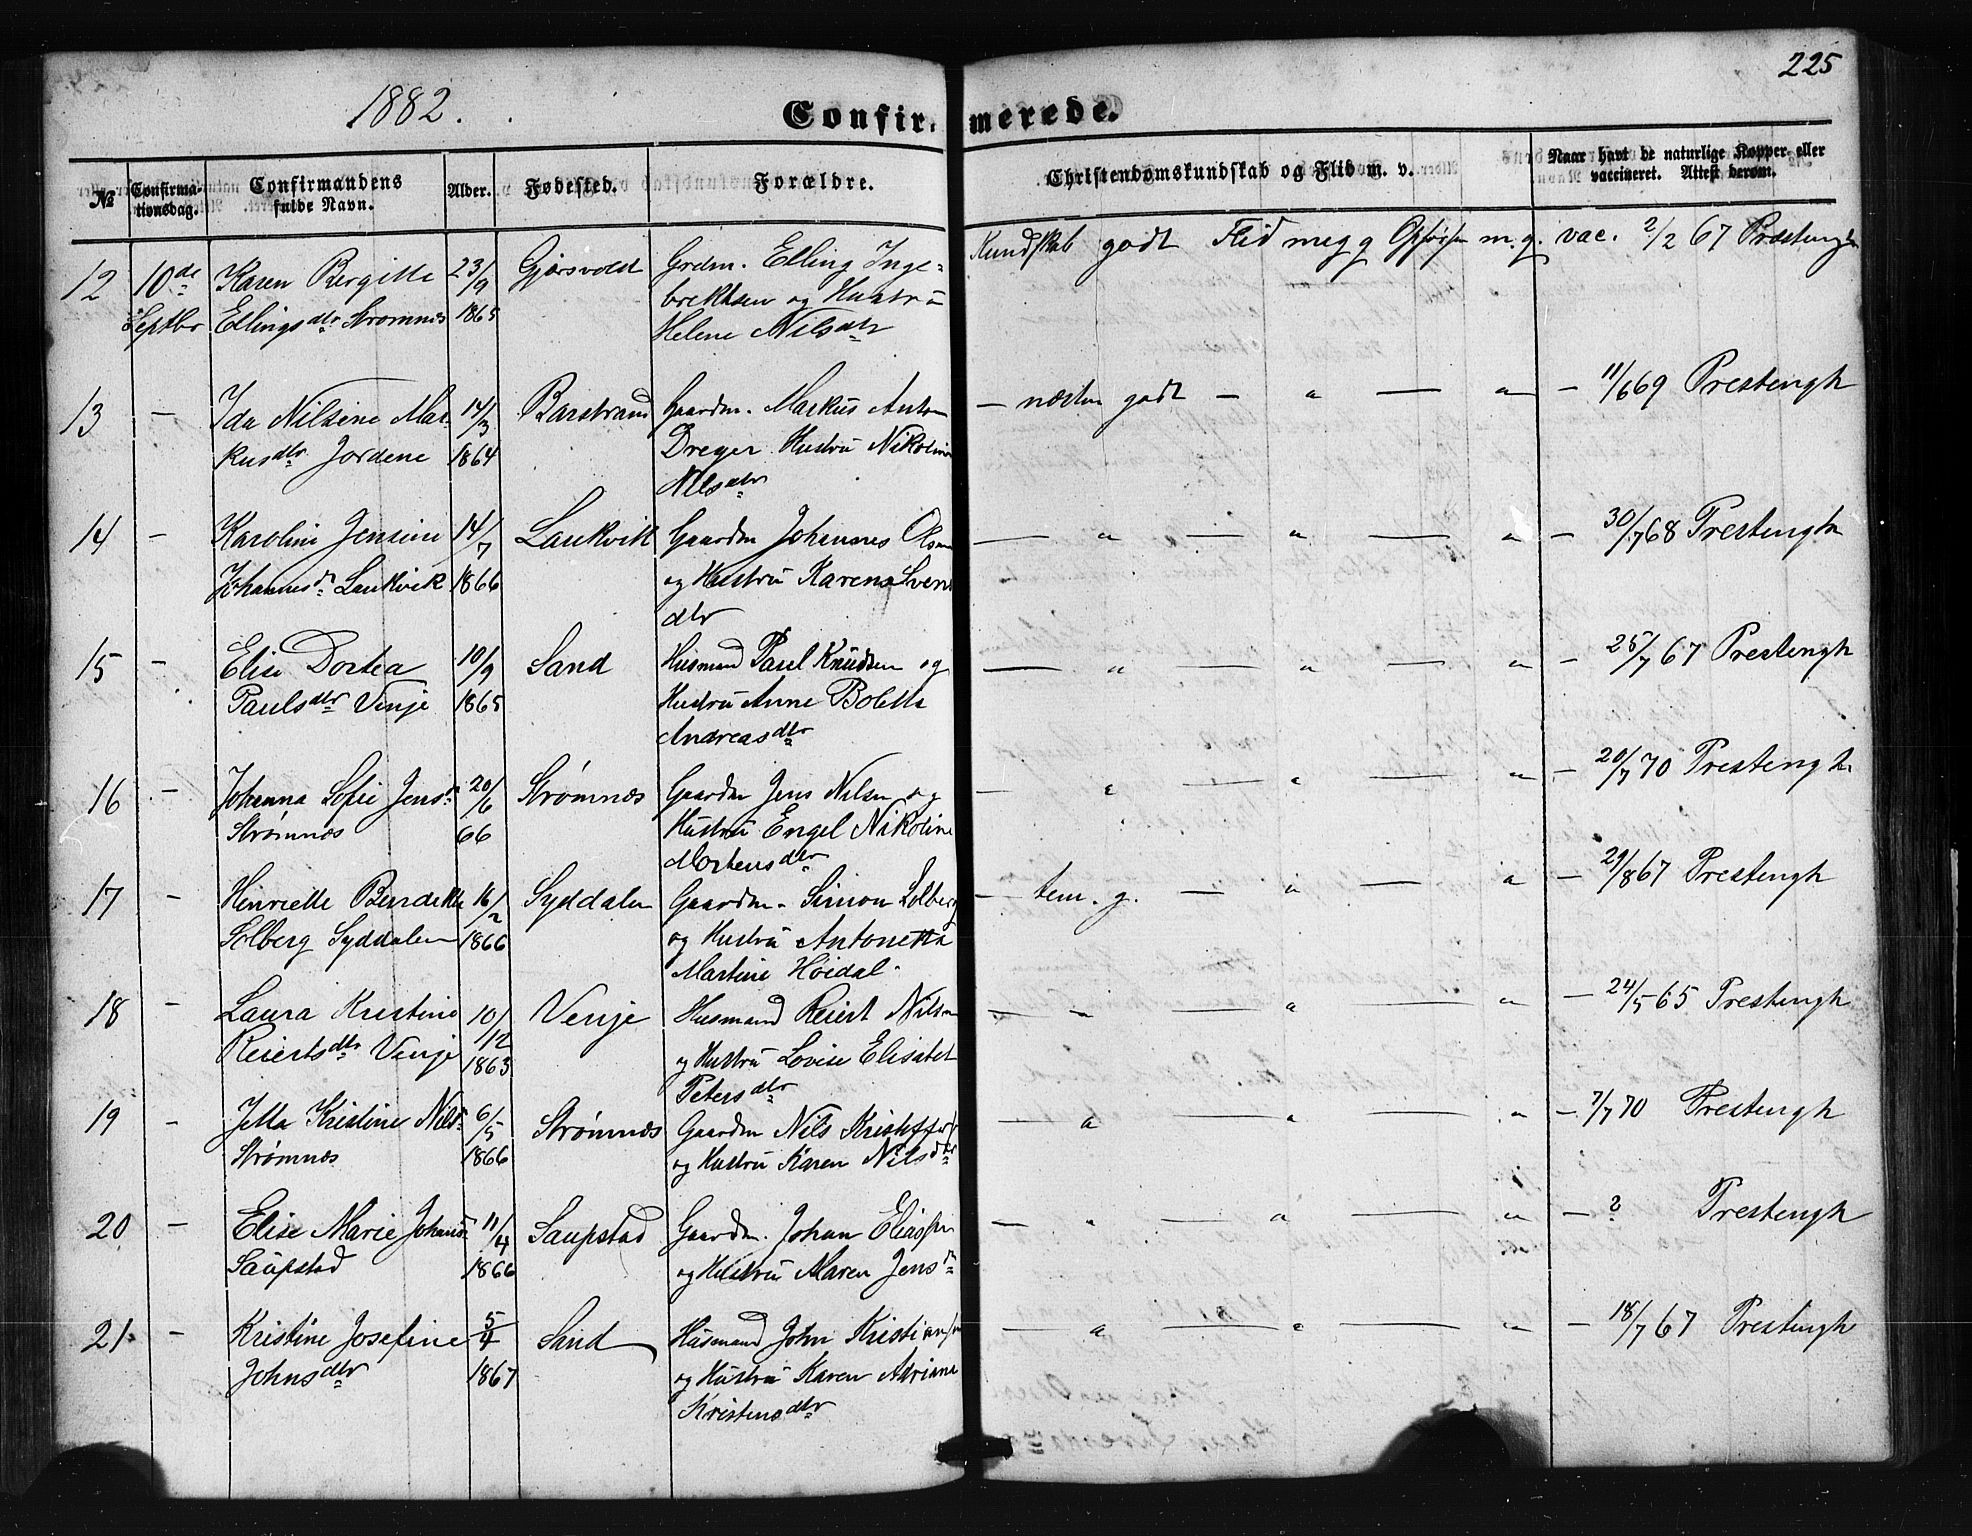 225
1882.
Confirmerede.
№
Confirmationsdag.
Confirmandens fulde Navn.
Alder.
Fødested.
Forældre.
Christendomskundskab og Flid m. v.
Naar havt de naturlige Kopper eller vaccineret. Attest derom.
12 10de Karen Bergitte 23/9 Gjersvold Grdm. Elling Inge- Kundskab godt Flid meg g Opførsel m. g. vac. 2/2 67 Præstengh
Septbr Ellingsdtr Strømnæs 1865 brektsen og Hustru
Helene Nilsdtr
13 — Ida Nilsine Mar- 14/3 Barstrand Gaardm. Markus Anton — næsten godt — " — " — 11/6 69 Prestengh
kusdtr Jordene 1864 Dreyer Hustru Nikoline
Nilsdtr
14 — Karoline Jensine 14/7 Laukvik Gaardm Johannes Olsen — " — " — " — 30/7 68 Prestengh
Johannesdr Laukvik 1866 og Hustru Karen Svens
dtr
15 — Elise Dortea 10/9 Sand Husmand Paul Knudsen og — " — " — " — 25/7 67 Prestengh
Paulsdtr Venje 1865 Hustru Anne Boletta
Andreasdtr
16 — Johanna Sofie Jensdr 20/6 Strømnæs Gaardm Jens Nilsen og — " — " — " — 20/7 70 Prestengh
Strømnæs 66 Hustru Engel Nikoline
Mortensdtr
17 — Henriette Bendikte 16/2 Syddalen Gaardm. Simon Solberg — tem. g. — " — " — 29/8 67 Prestengh
Solberg Syddalen 1866 og Hustru Antonetta
Martine Høidal.
18 — Laura Kristine 10/12 Venje Husmand Reiert Nilsen — " — " — " — 24/5 65 Prestengh
Reiertsdtr Venje 1863 og Hustru Lovise Elisabet
Petersdtr
19 — Jetta Kristine Nilsdr 6/5 Strømnæs Gaardm Nils Kristoffers — " — " — " — 7/7 70 Prestengh
Strømnæs 1866 og Hustru Karen Nilsdtr
20 — Elise Marie Johansdr 11/4 Saupstad Gaardm. Johan Eliassen — " — " — " — ? Prestengh
Saupstad 1866 og Hustru Maren Jensdr
21. — Kristine Josefine 5/4 Sand Husmand John Kristiansen — " — " — " — 18/7 67 Prestengh
Johnsdtr 1867 og Hustru Karen Adriana
Kristensdtr